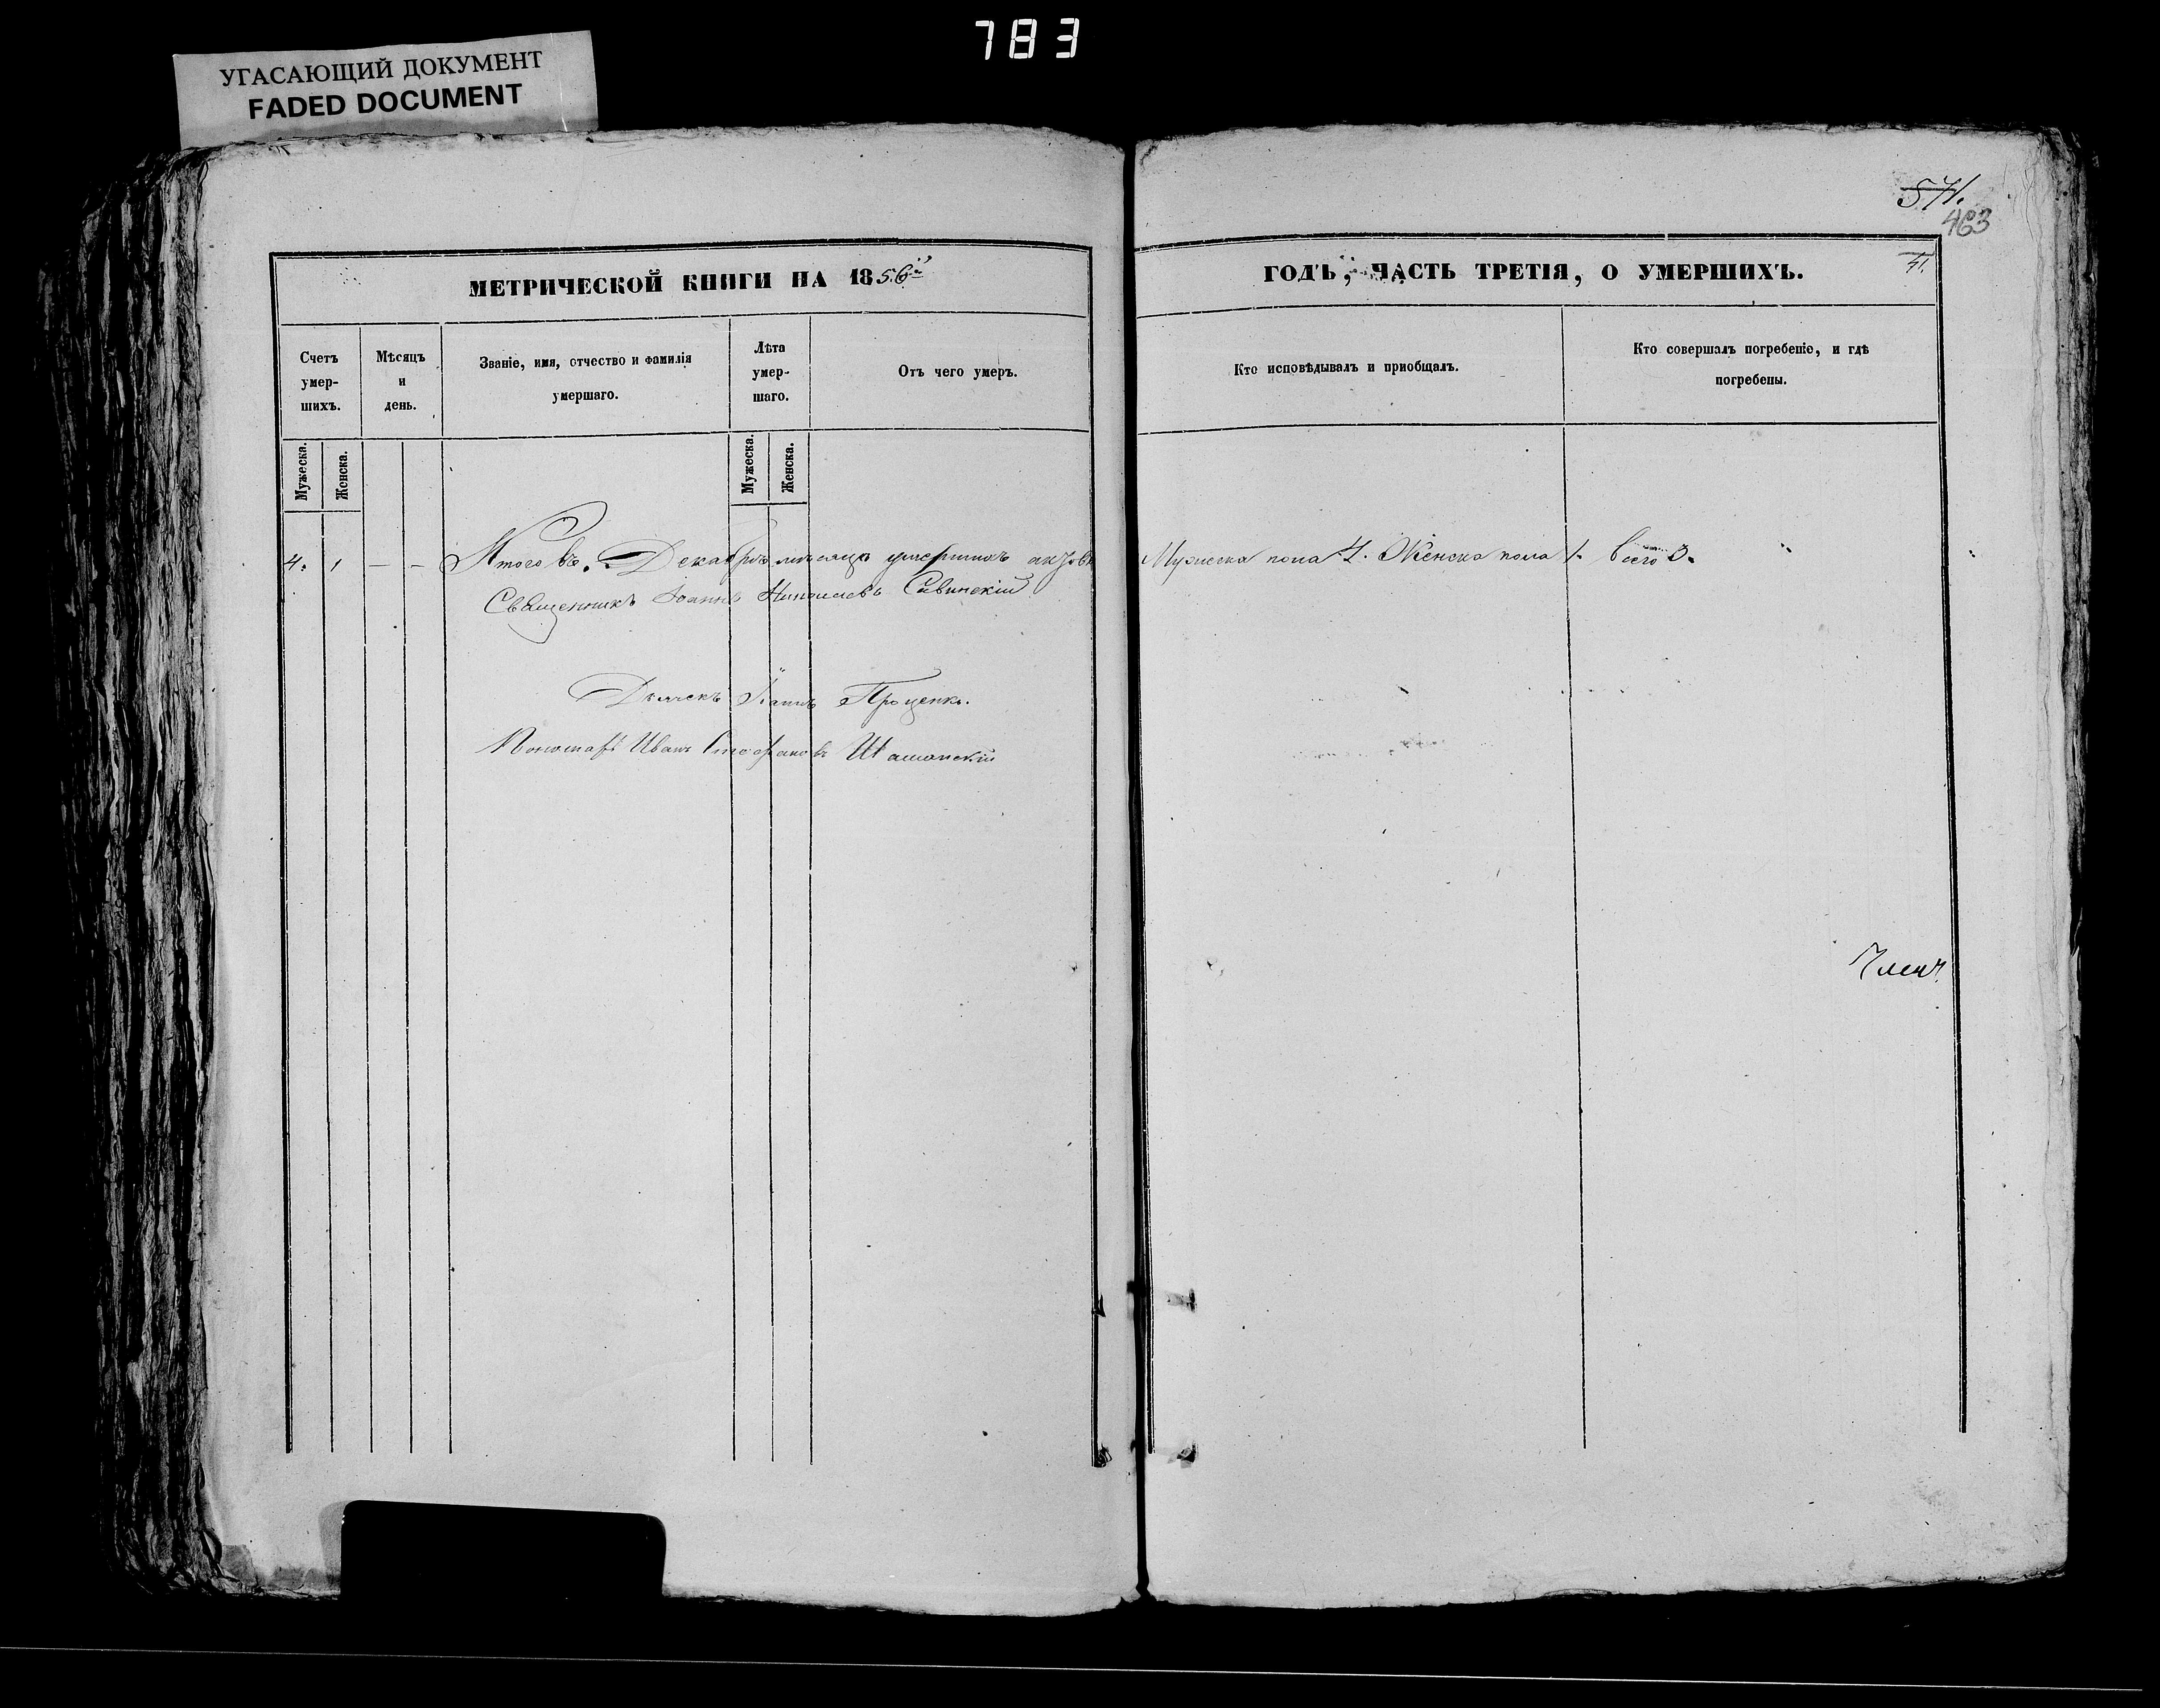 783
УГАСАЮЩИЙ ДОКУМЕНТ
FADED DOCUMENT
571.
463
МЕТРИЧЕСКОЙ КНИГИ НА 1856й
ГОДЪ, ЧАСТЬ ТРЕТІЯ, О УМЕРШИХЪ.
41.
Счетъ умер- шихъ.
Мѣсяцъ и день.
Званіе, имя, отчество и фамилія умершаго.
Лѣта умер- шаго.
Отъ чего умеръ.
Кто исповѣдывалъ и пріобщалъ.
Кто совершалъ погребеніе, и гдѣ погребены.
Мужеска.
Женска.
Мужеска.
Женска.
4. 1 – – Итого въ Декабрѣ мѣсяцѣ умершихъ
Мужеска пола 4. Женска пола 1. Всего 5.
Священникъ Іоаннъ Николаевъ Савинскій
Дьячекъ Проценко.
Пономарь Иванъ Стефановъ
Членъ